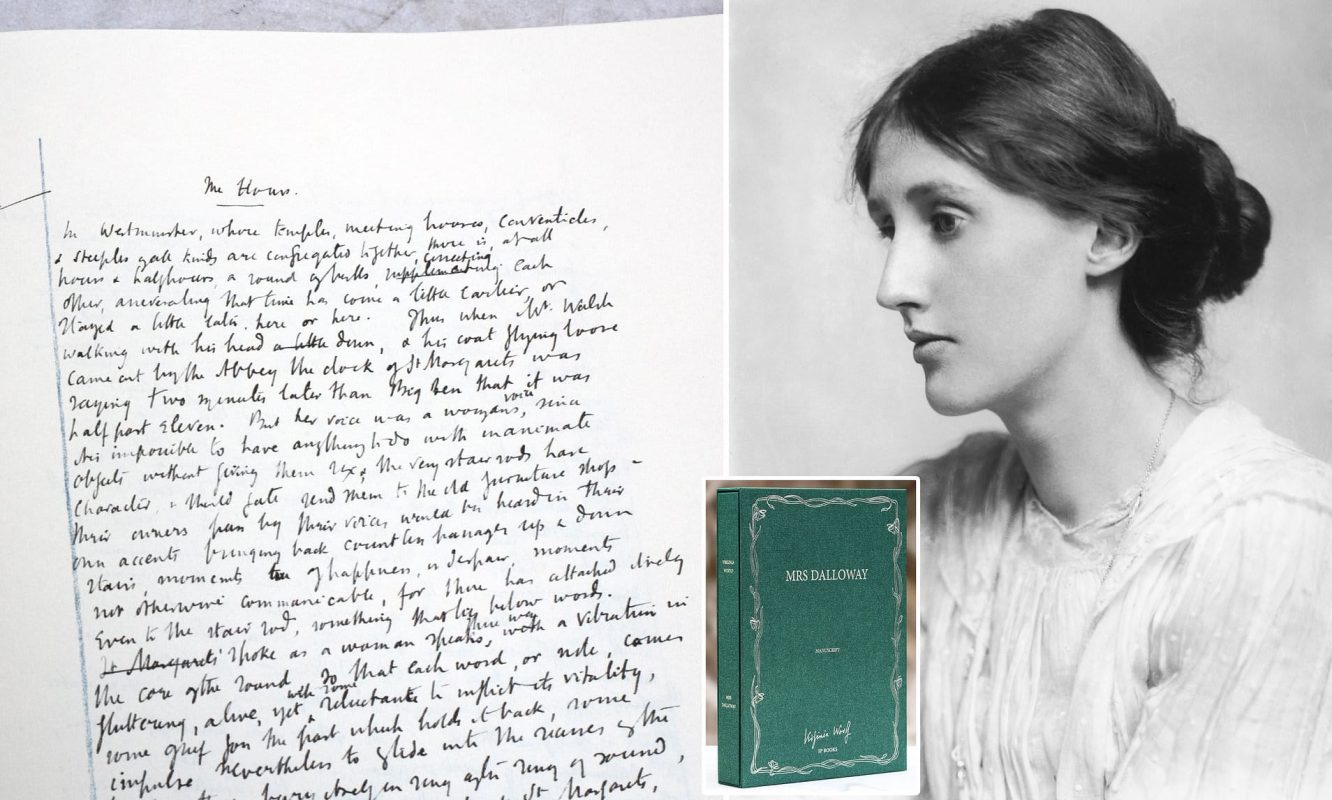 The Hours.
In Westminster, where temples, meeting houses, conventicles,
& steeples of all kinds are congregated together, there is, at all
hours & halfhours, a round of bells, correcting
supplementing each
other, asseverating that time has come a little earlier, or
stayed a little later, here or here. Thus when Mr. Walsh
walking with his head a little down, & his coat flying loose
came out by the Abbey the clock of St Margarets was
saying two minutes later than Big Ben that it was
half past eleven. But her voice was a womans, voice since
it is impossible to have anything to do with inanimate
objects without giving them sex, the very stair rods have
character, & should
send them to the old furniture shop -
their owners pass by their voices would be heard in their
own accents bringing back countless passages up & down
stairs, moments of happiness, or despair, moments
not otherwise communicable, for there has attached itself
Even to the stair rod, something that lies below words.
St Margarets' spoke as a woman speaks, there was with a vibration in
the core of the sound so that each word, or note, comes
fluttering, alive, yet with some reluctante to inflict its vitality,
some grief for the past which holds it back, some
impulse nevertheless to glide into the recesses of the
ring after ring of sound,
St Margarets,
VIRGINIA
WOOLF
MRS
DALLOWAY
MRS DALLOWAY
MANUSCRIPT
Virginia Woolf
SP BOOKS